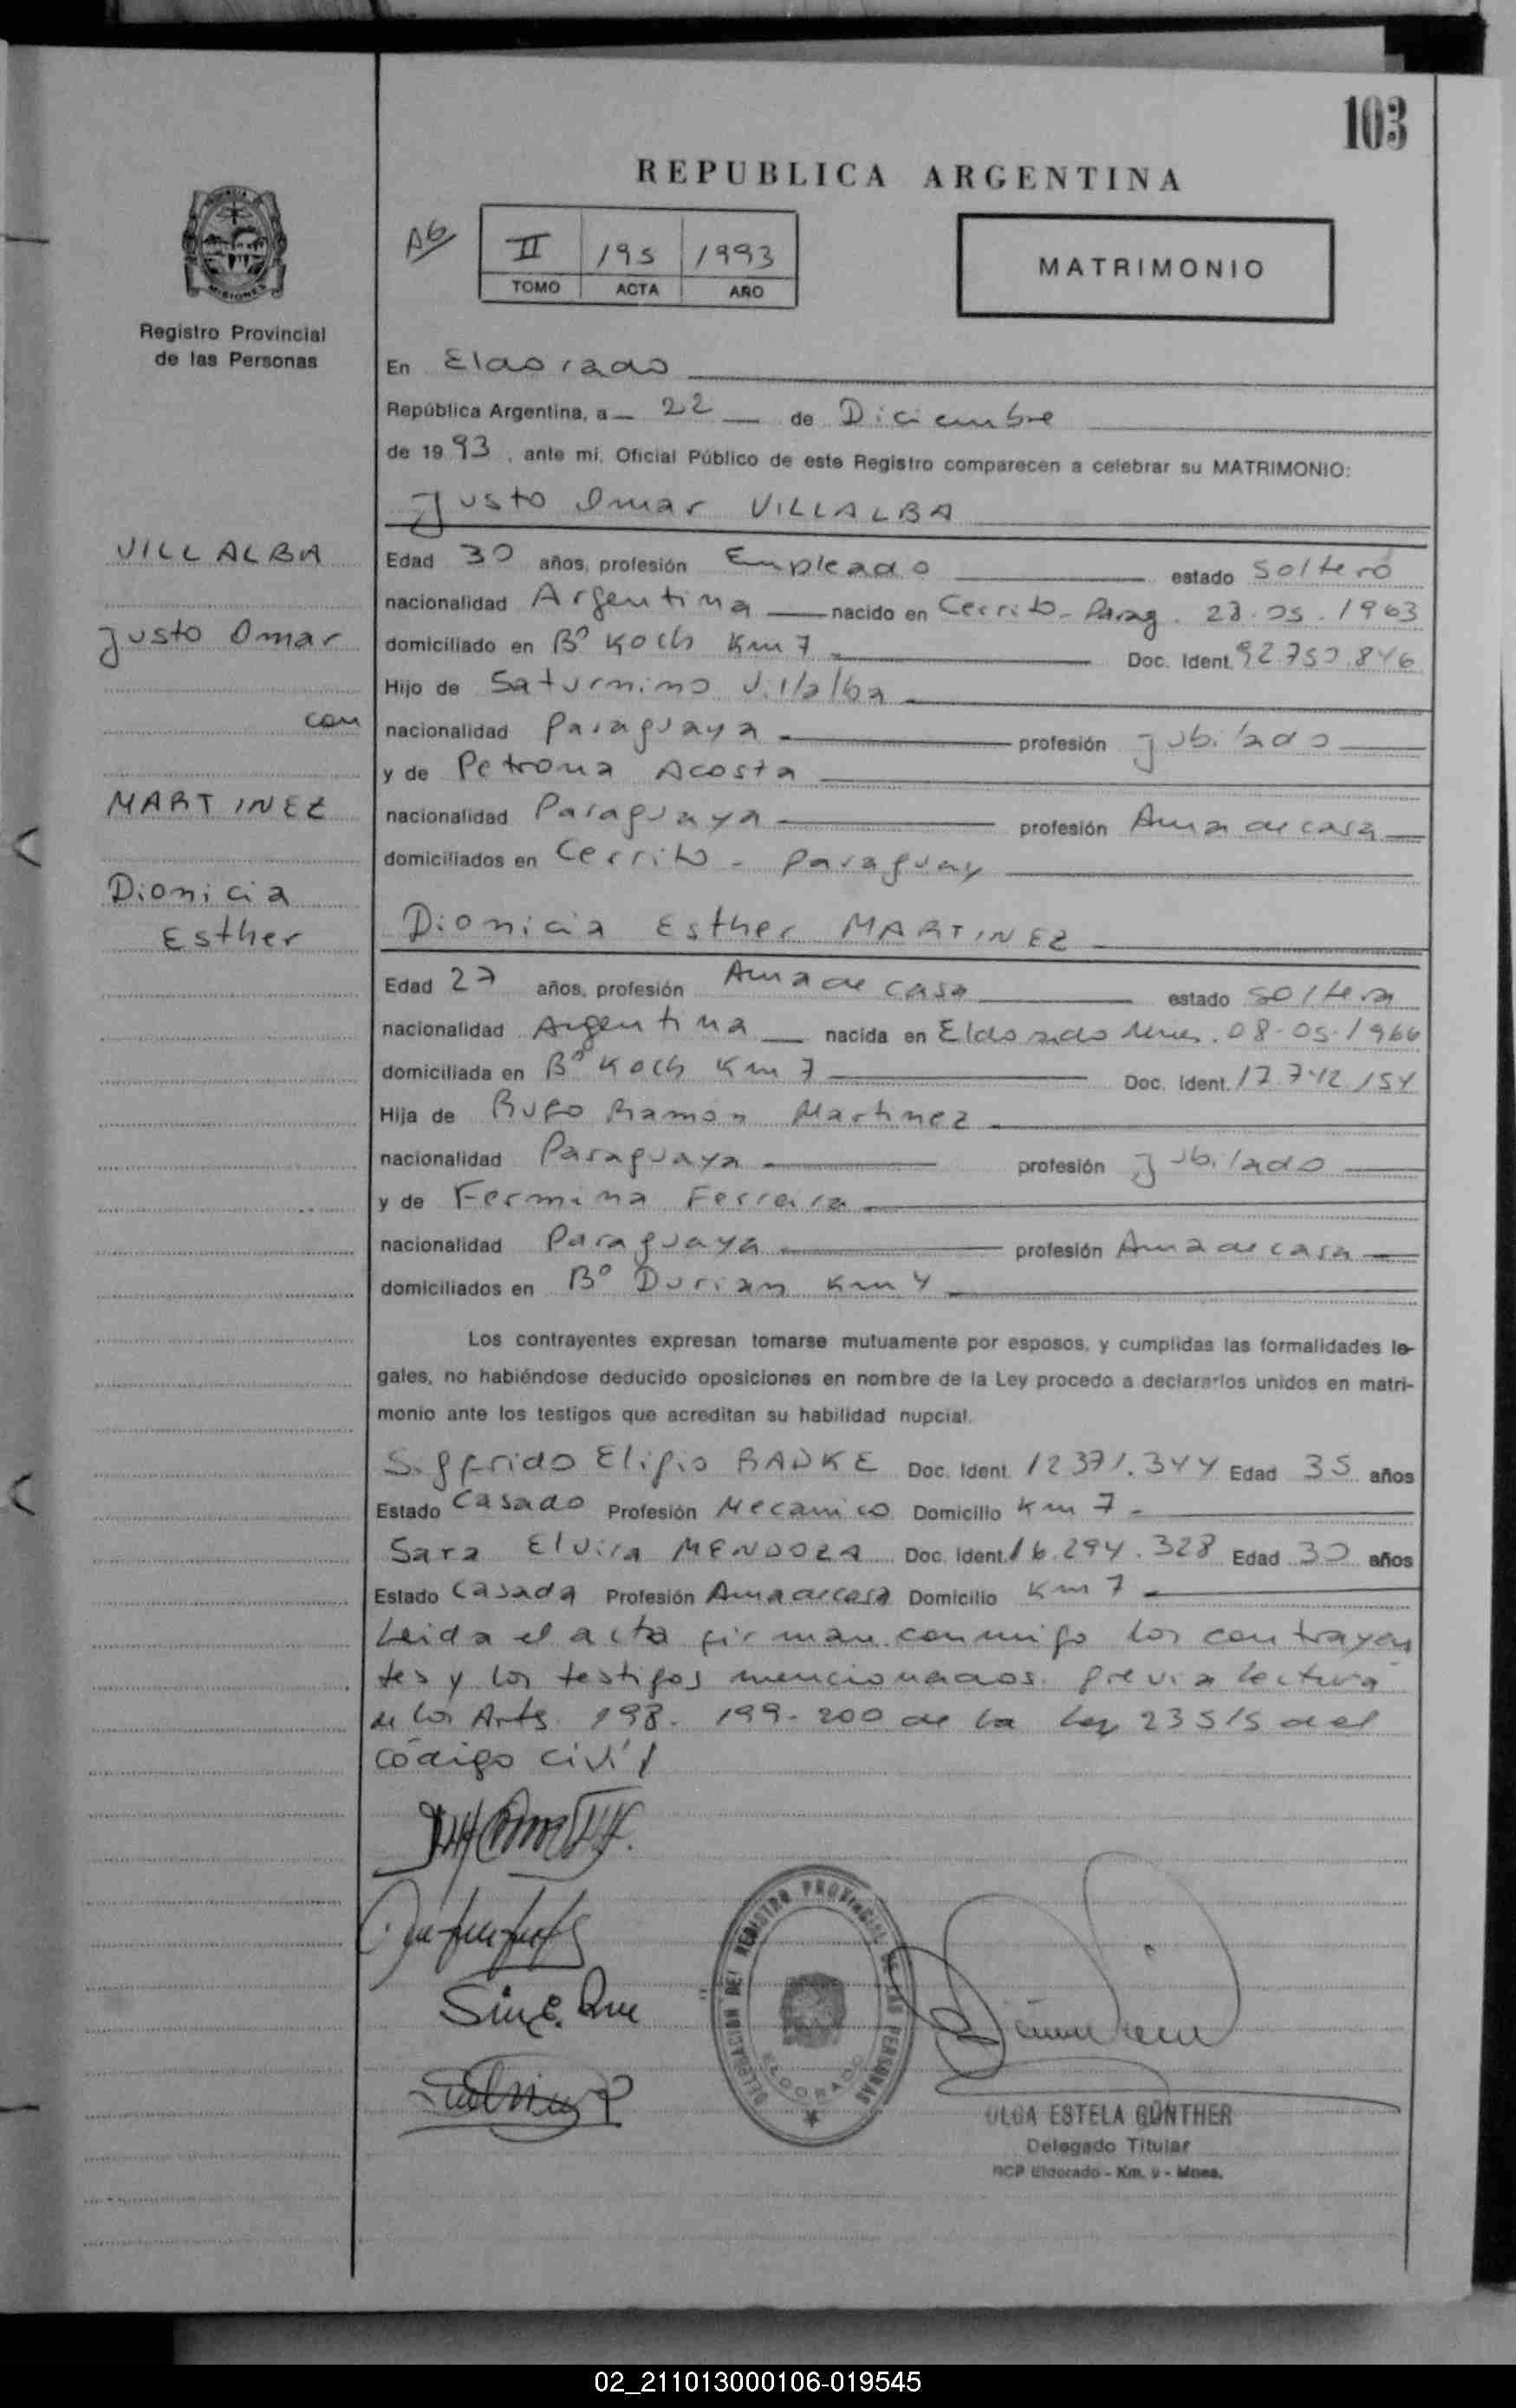 103
REPUBLICA ARGENTINA
A6
II 195 1993
TOMO ACTA AÑO
MATRIMONIO
Registro Provincial
de las Personas
En Eldorado
República Argentina, a 22 de Diciembre
de 1993, ante mí, Oficial Público de este Registro comparecen a celebrar su MATRIMONIO:
Justo Omar VILLALBA
VILLALBA
Justo Omar
con
MARTINEZ
Dionicia
Esther
Edad 30 años, profesión Empleado estado soltero
nacionalidad Argentina nacido en Cerrito - Parag. 28.05.1963
domiciliado en Bº Koch Km 7 Doc. Ident. 92.750.846
Hijo de Saturnino Villalba
nacionalidad Paraguaya profesión jubilado
y de Petrona Acosta
nacionalidad Paraguaya profesión Ama de casa
domiciliados en Cerrito - Paraguay
Dionicia Esther MARTINEZ
Edad 27 años, profesión Ama de casa estado soltera
nacionalidad Argentina nacida en Eldorado Mnes. 08-05-1966
domiciliada en Bº Koch Km 7 Doc. Ident. 17.742.154
Hija de Rugo Ramón Martinez
nacionalidad Paraguaya profesión jubilado
y de Fermina Ferreira
nacionalidad Paraguaya profesión Ama de casa
domiciliados en Bº Durian Km 4
Los contrayentes expresan tomarse mutuamente por esposos, y cumplidas las formalidades le-
gales, no habiéndose deducido oposiciones en nombre de la Ley procedo a declararlos unidos en matri-
monio ante los testigos que acreditan su habilidad nupcial.
Sigfrido Eligio RADKE Doc. Ident. 12371.344 Edad 35 años
Estado Casado Profesión Mecanico Domicilio Km 7 -
Sara Elvira MENDOZA Doc. Ident. 16.294.328 Edad 30 años
Estado Casada Profesión Ama de casa Domicilio Km 7
Leida el acta firman conmigo los contrayen
tes y los testigos mencionados. previa lectura
de los Arts. 198. 199-200 de la Ley 23515 del
código civil
DELEGACION DEL REGISTRO PROVINCIAL DE LAS PERSONAS
ELDORADO
OLGA ESTELA GÜNTHER
Delegado Titular
RCP Eldorado - Km. 9 - Mnes.
02_211013000106-019545